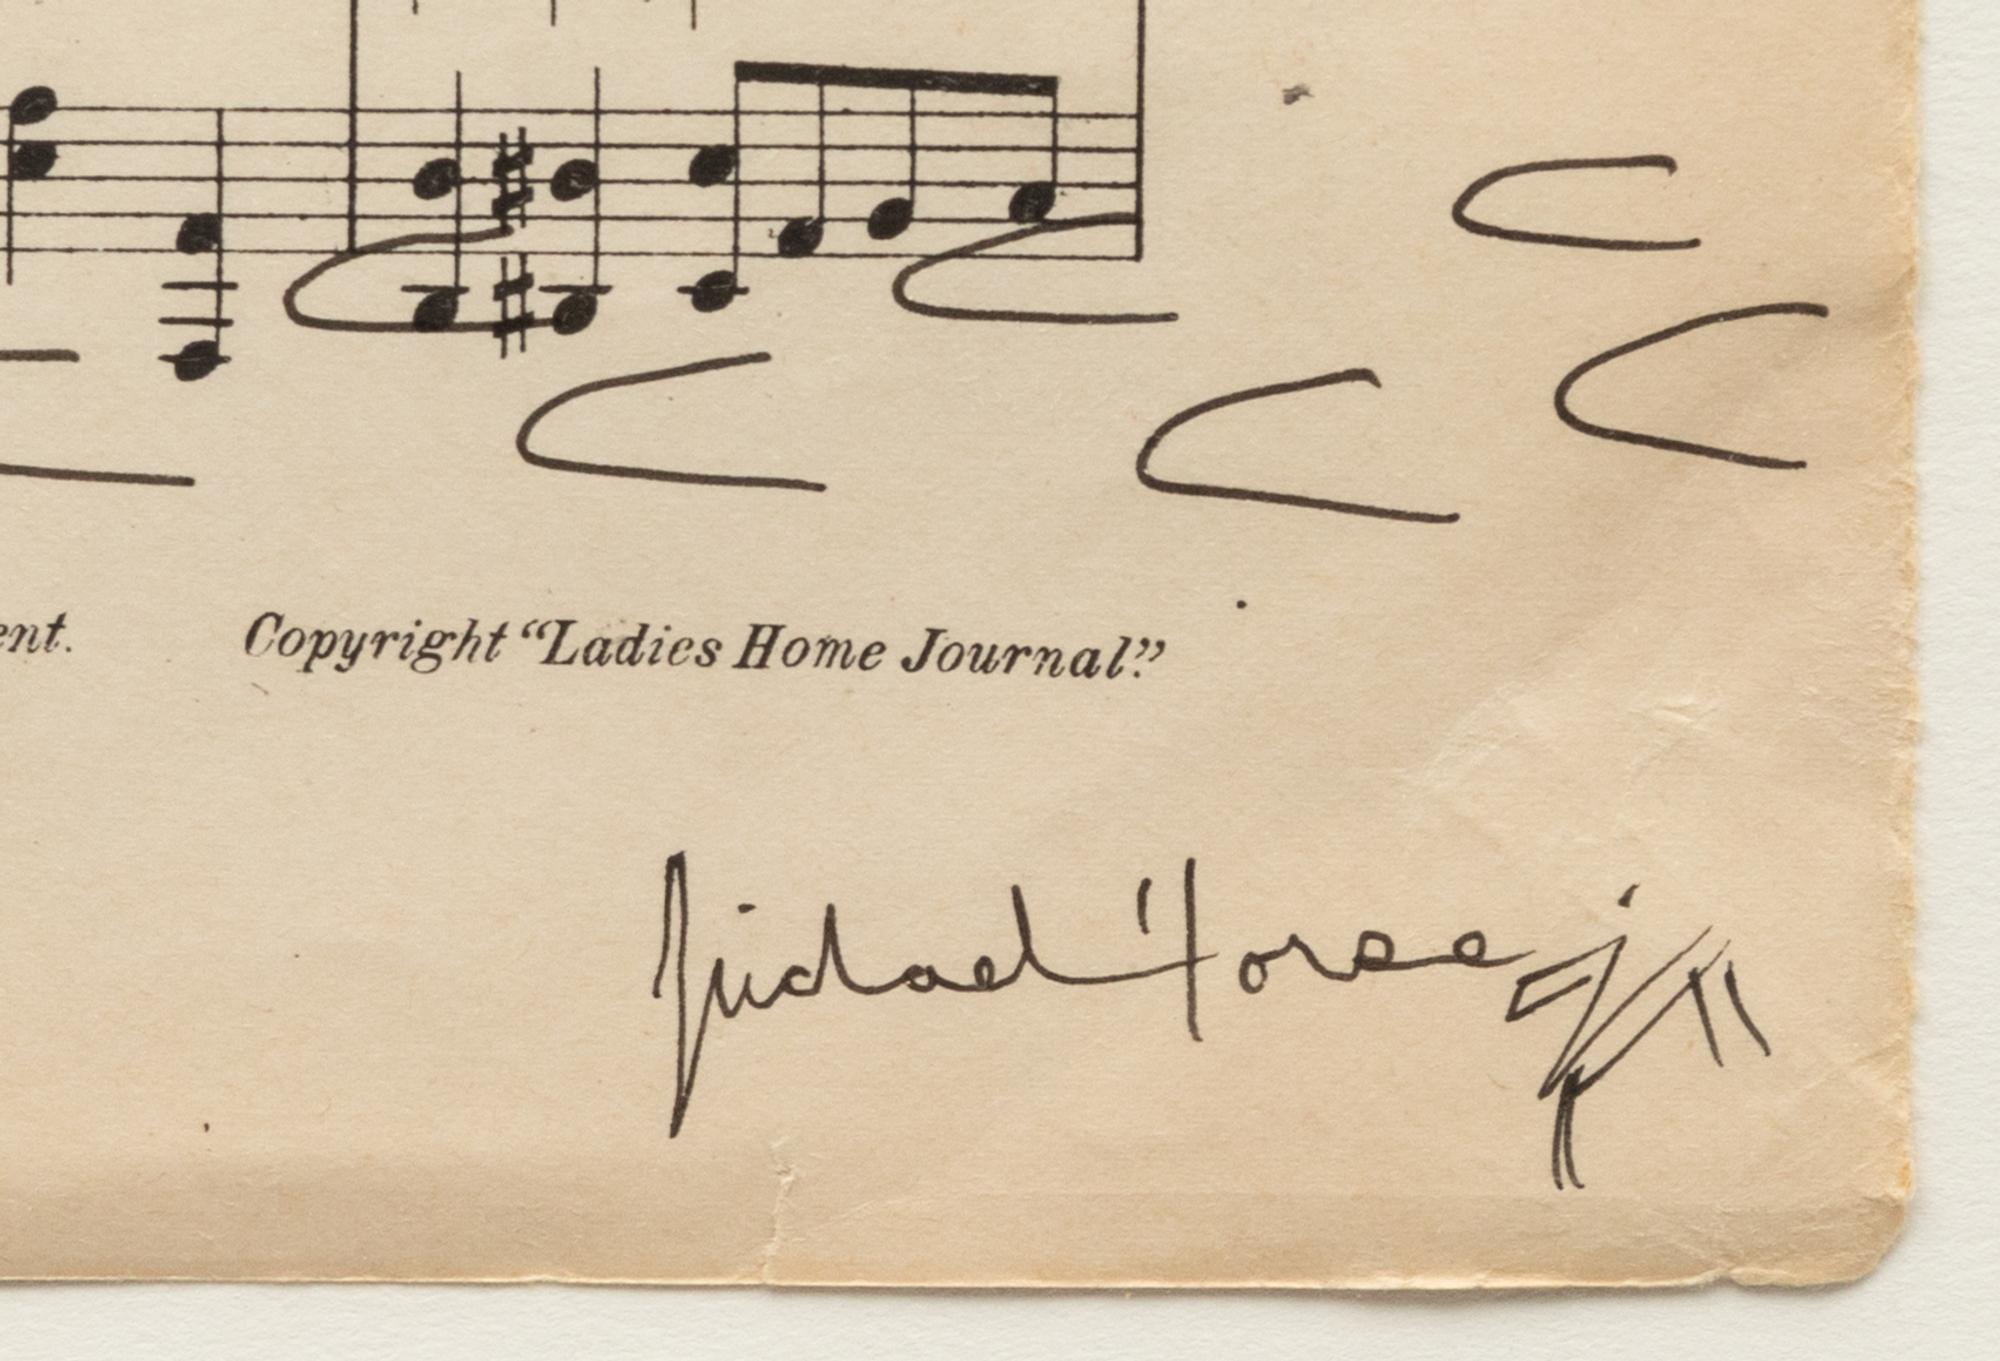 ent.    Copyright “Ladies Home Journal.”
Michael